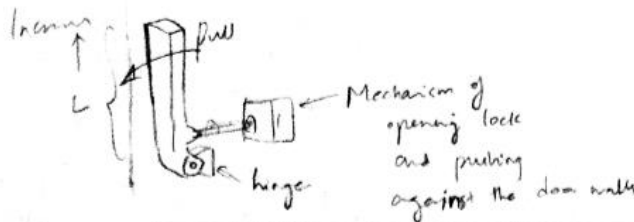 Increase
Pull
L
Mechanism of
opening lock
and pushing
against the door walls
hinge